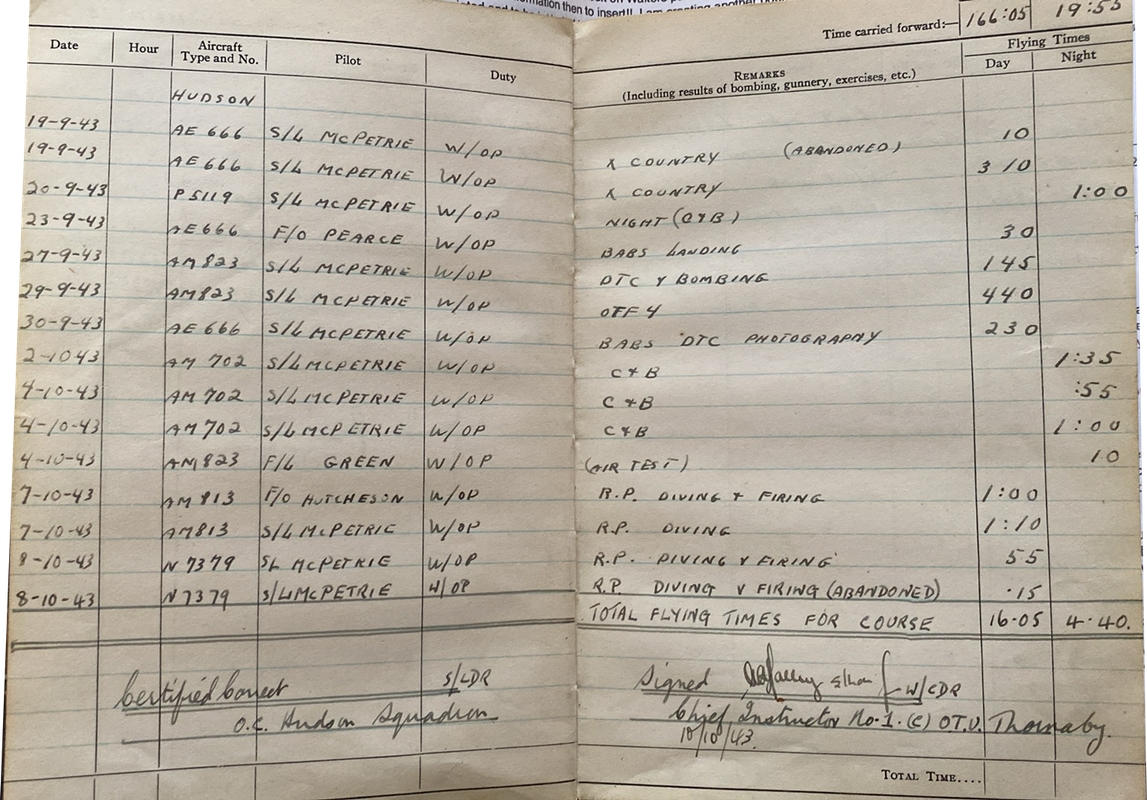 mation then to insert!! I am creating another
Time carried forward:— 166:05 19:55
Date Hour Aircraft Type and No. Pilot Duty REMARKS (Including results of bombing, gunnery, exercises, etc.) Flying Times Day Night
HUDSON
19-9-43 AE 666 S/L MCPETRIE W/OP X COUNTRY (ABANDONED) 10
19-9-43 AE 666 S/L MCPETRIE W/OP X COUNTRY 3 10
20-9-43 P5119 S/L MCPETRIE W/OP NIGHT (C&B) 1:00
23-9-43 AE666 F/O PEARCE W/OP BABS LANDING 30
27-9-43 AM823 S/L MCPETRIE W/OP DTC & BOMBING 145
29-9-43 AM823 S/L MCPETRIE W/OP OFF 4 440
30-9-43 AE 666 S/L MCPETRIE W/OP BABS DTC PHOTOGRAPHY 230
2-1043 AM 702 S/L MCPETRIE W/OP C&B 1:35
4-10-43 AM 702 S/L MCPETRIE W/OP C&B :55
4-10-43 AM 702 S/L MCPETRIE W/OP C&B 1:00
4-10-43 AM823 F/L GREEN W/OP (AIR TEST) 10
7-10-43 AM 813 F/O HUTCHESON W/OP R.P. DIVING & FIRING 1:00
7-10-43 AM813 S/L MCPETRIE W/OP R.P. DIVING 1:10
8-10-43 N7379 SL MCPETRIE W/OP R.P. DIVING & FIRING 55
8-10-43 N7379 S/L MCPETRIE W/OP R.P. DIVING & FIRING (ABANDONED) .15
TOTAL FLYING TIMES FOR COURSE 16.05 4.40.
Certified Correct S/LDR
O.C. Hudson Squadron
Signed W/CDR
Chief Instructor No.1. (C) O.T.U. Thornaby.
10/10/43.
TOTAL TIME....